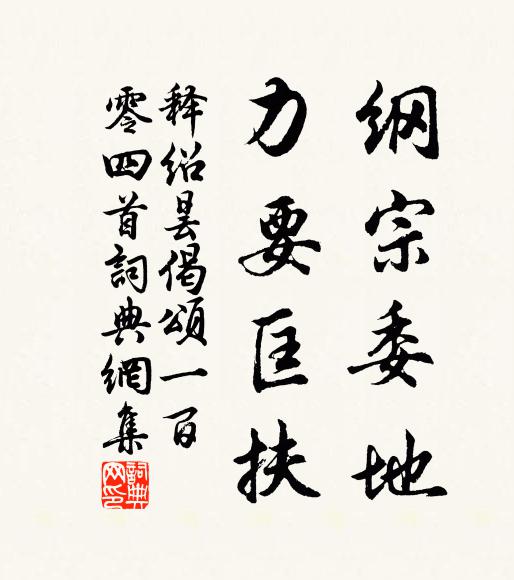 纲宗委地
力要匡扶
释绍昙偈颂一百
零四首詞典網集
詞典网印